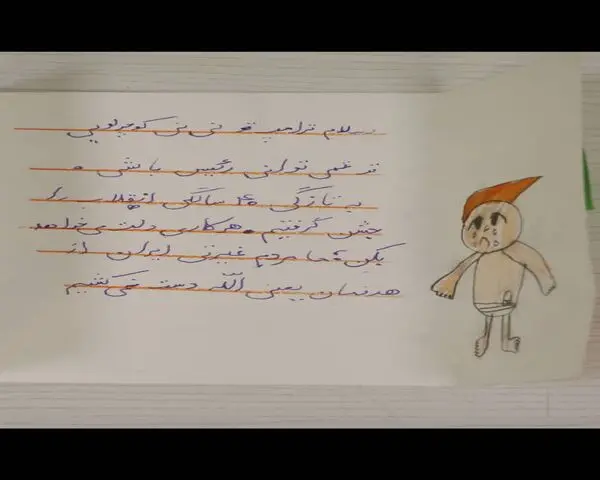 سلام ترامپ تو نی نی کوچولویی
تو نمی توانی رئیس باشی .
به تازگی ۴۶ سالگی انقلاب را
جشن گرفتیم . هرکاری دلت می خواهد
بکن ؛ ما مردم غیرتی ایران از
هدفمان یعنی اللّه دست نمی کشیم